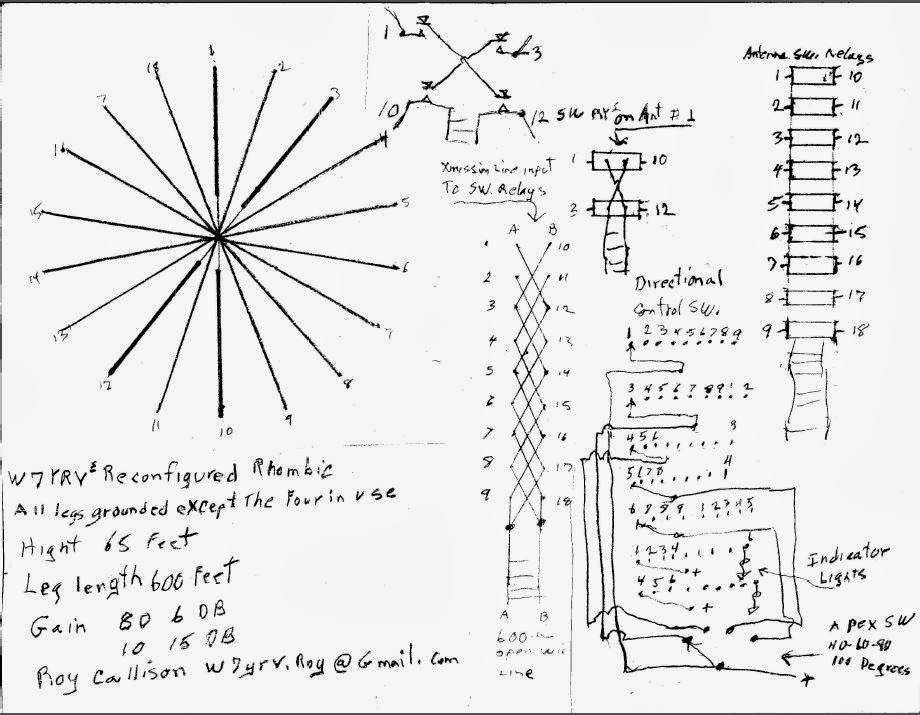 1
2
3
4
5
6
7
8
9
10
11
12
13
14
15
16
7
18
1
3
10
12 SW RYs on Ant # 1
1 10
3 12
Xmission Line input
To SW. Relays
A B
1 10
2 11
3 12
4 13
5 14
6 15
7 16
8 17
9 18
A B
600
open wire
Line
Antenna SW. Relays
1 10
2 11
3 12
4 13
5 14
6 15
7 16
8 17
9 18
Directional
Control SW.
1 2 3 4 5 6 7 8 9
3 4 5 6 7 8 9 1 2
4 5 6 3
5 6 7 8 4
6 7 8 9 1 2 3 4 5
1 2 3 4 6
+
4 5 6
+
Indicator
Lights
Apex SW
40-60-90
100 Degrees
W7YRVs Reconfigured Rhombic
All legs grounded except The Four in use
Hight 65 Feet
Leg length 600 Feet
Gain 80 6 DB
10 15 DB
Roy Callison W7yrv.Roy@Gmail.com